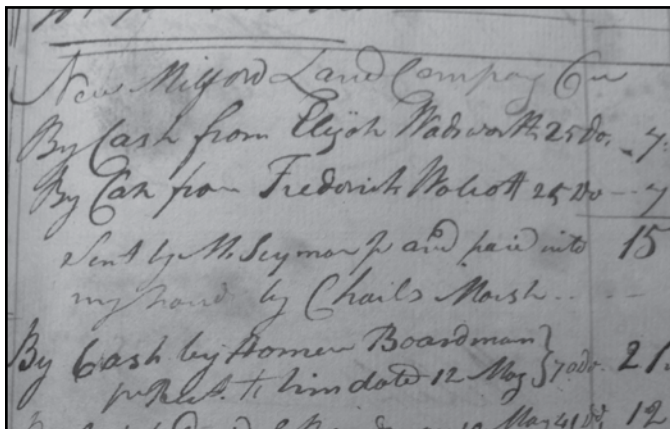 New Milford Land Compay Cr
By Cash from Elijah Wadsworth 25 Do. - 7.
By Cash from Frederick Wolcott 25 Do -- 7
Sent by Mr Seymour and paid into 15
my hand by Charls Marsh . . - -
By Cash by Homer Boardman
pr Rect. to him date 12 May } 70 do. 21.
12 May 41 Do. 12